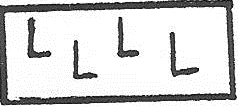 L L L L